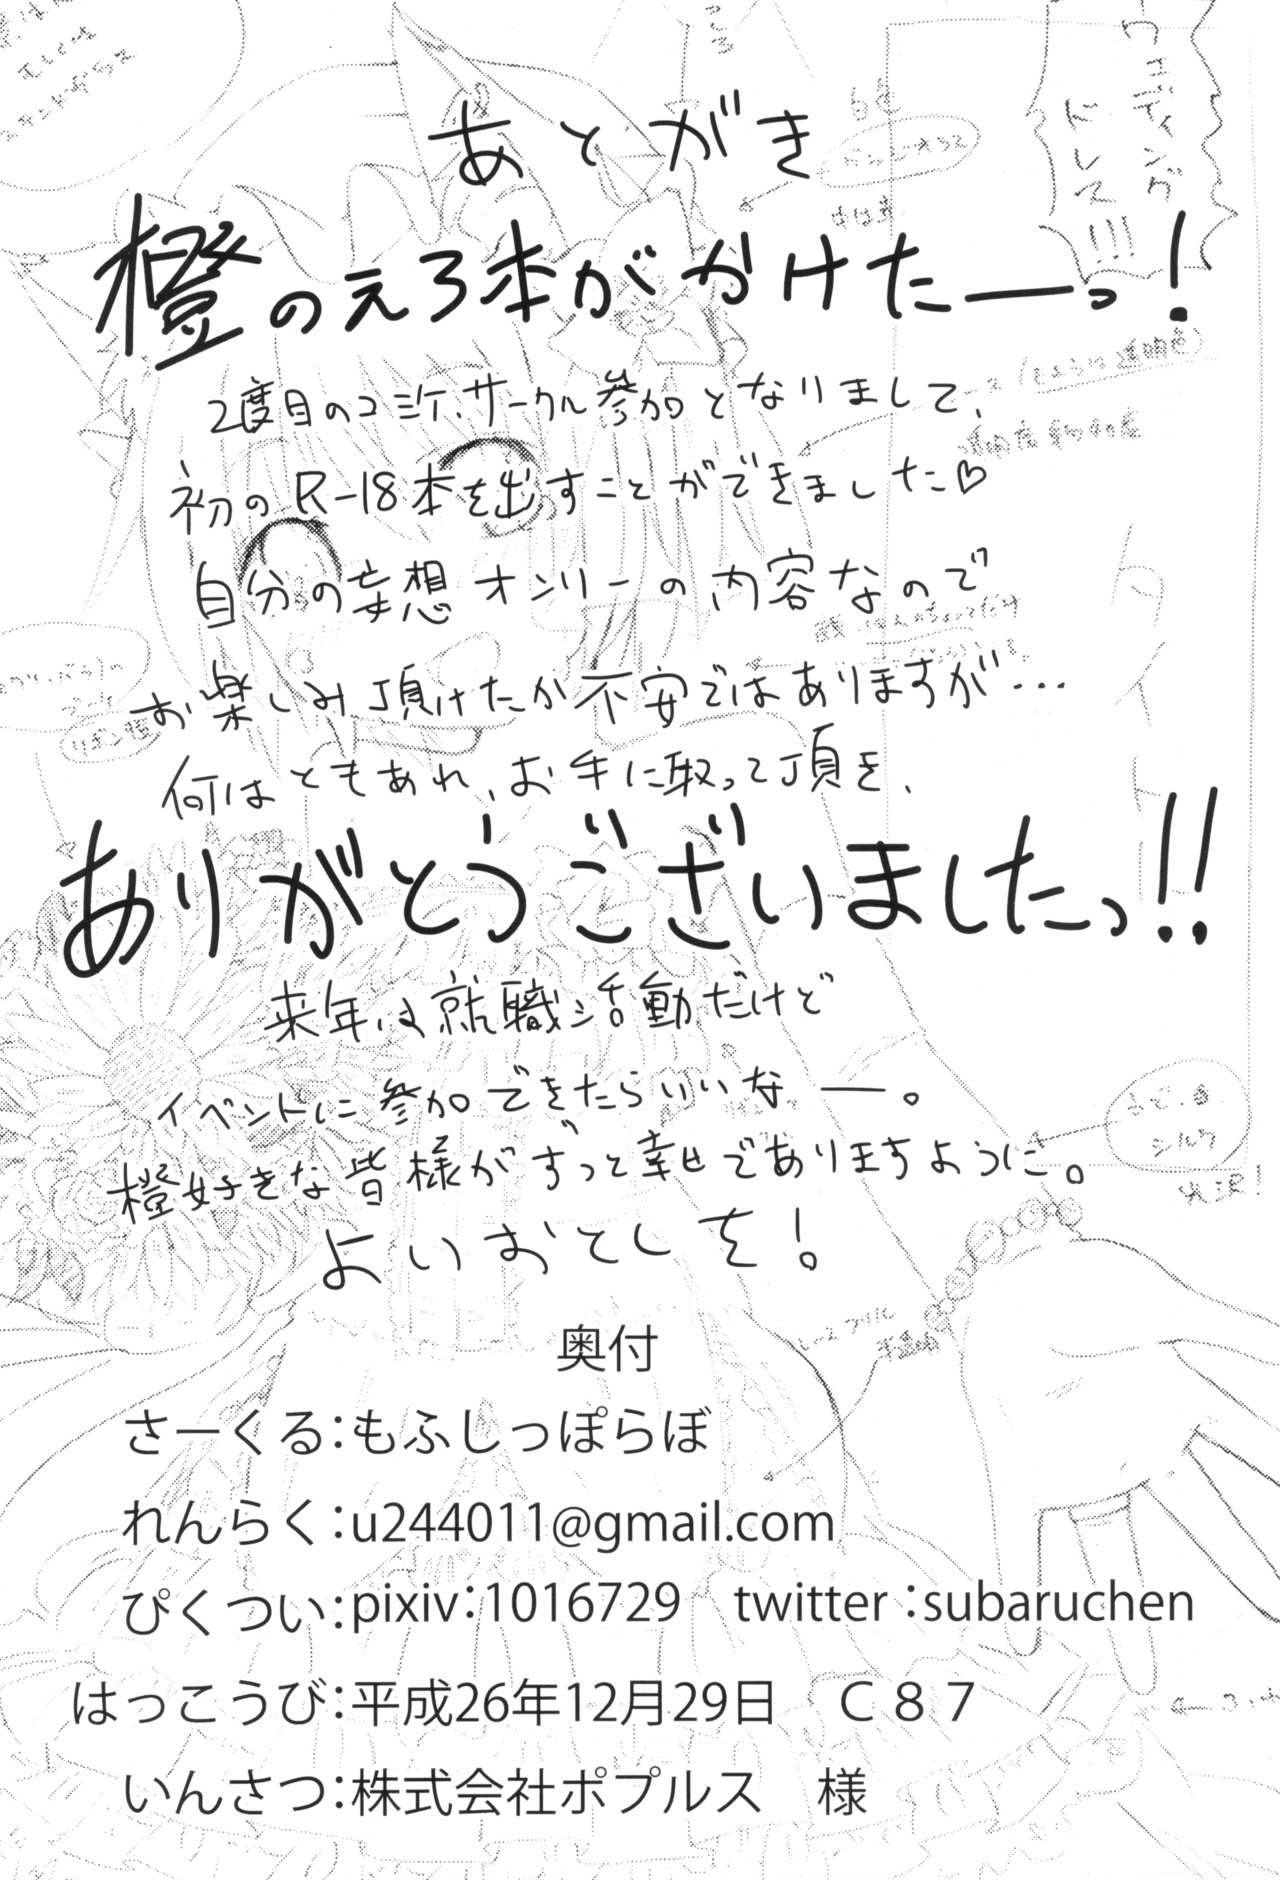 あとがき
橙のえろ本がかけたーっ!
2度目のコミケ、サークル参加となりまして、
初のR-18本を出すことができました♡
自分の妄想オンリーの内容なので
お楽しみ頂けたか不安ではありますが…
何はともあれ、お手に取って頂き、
ありがとうございましたっ!!
来年は就職活動だけど
イベントに参加できたらいいなー。
橙好きな皆様がずっと幸せでありますように。
よいおとしを!
奥付
さーくる:もふしっぽらぼ
れんらく:u244011@gmail.com
ぴくつい:pixiv:1016729　twitter:subaruchen
はっこうび:平成26年12月29日　C87
いんさつ:株式会社ポプルス　様
ウェディング
ドレス!!!
白色
レースフリル
半透明
シルク
光沢!
リボン